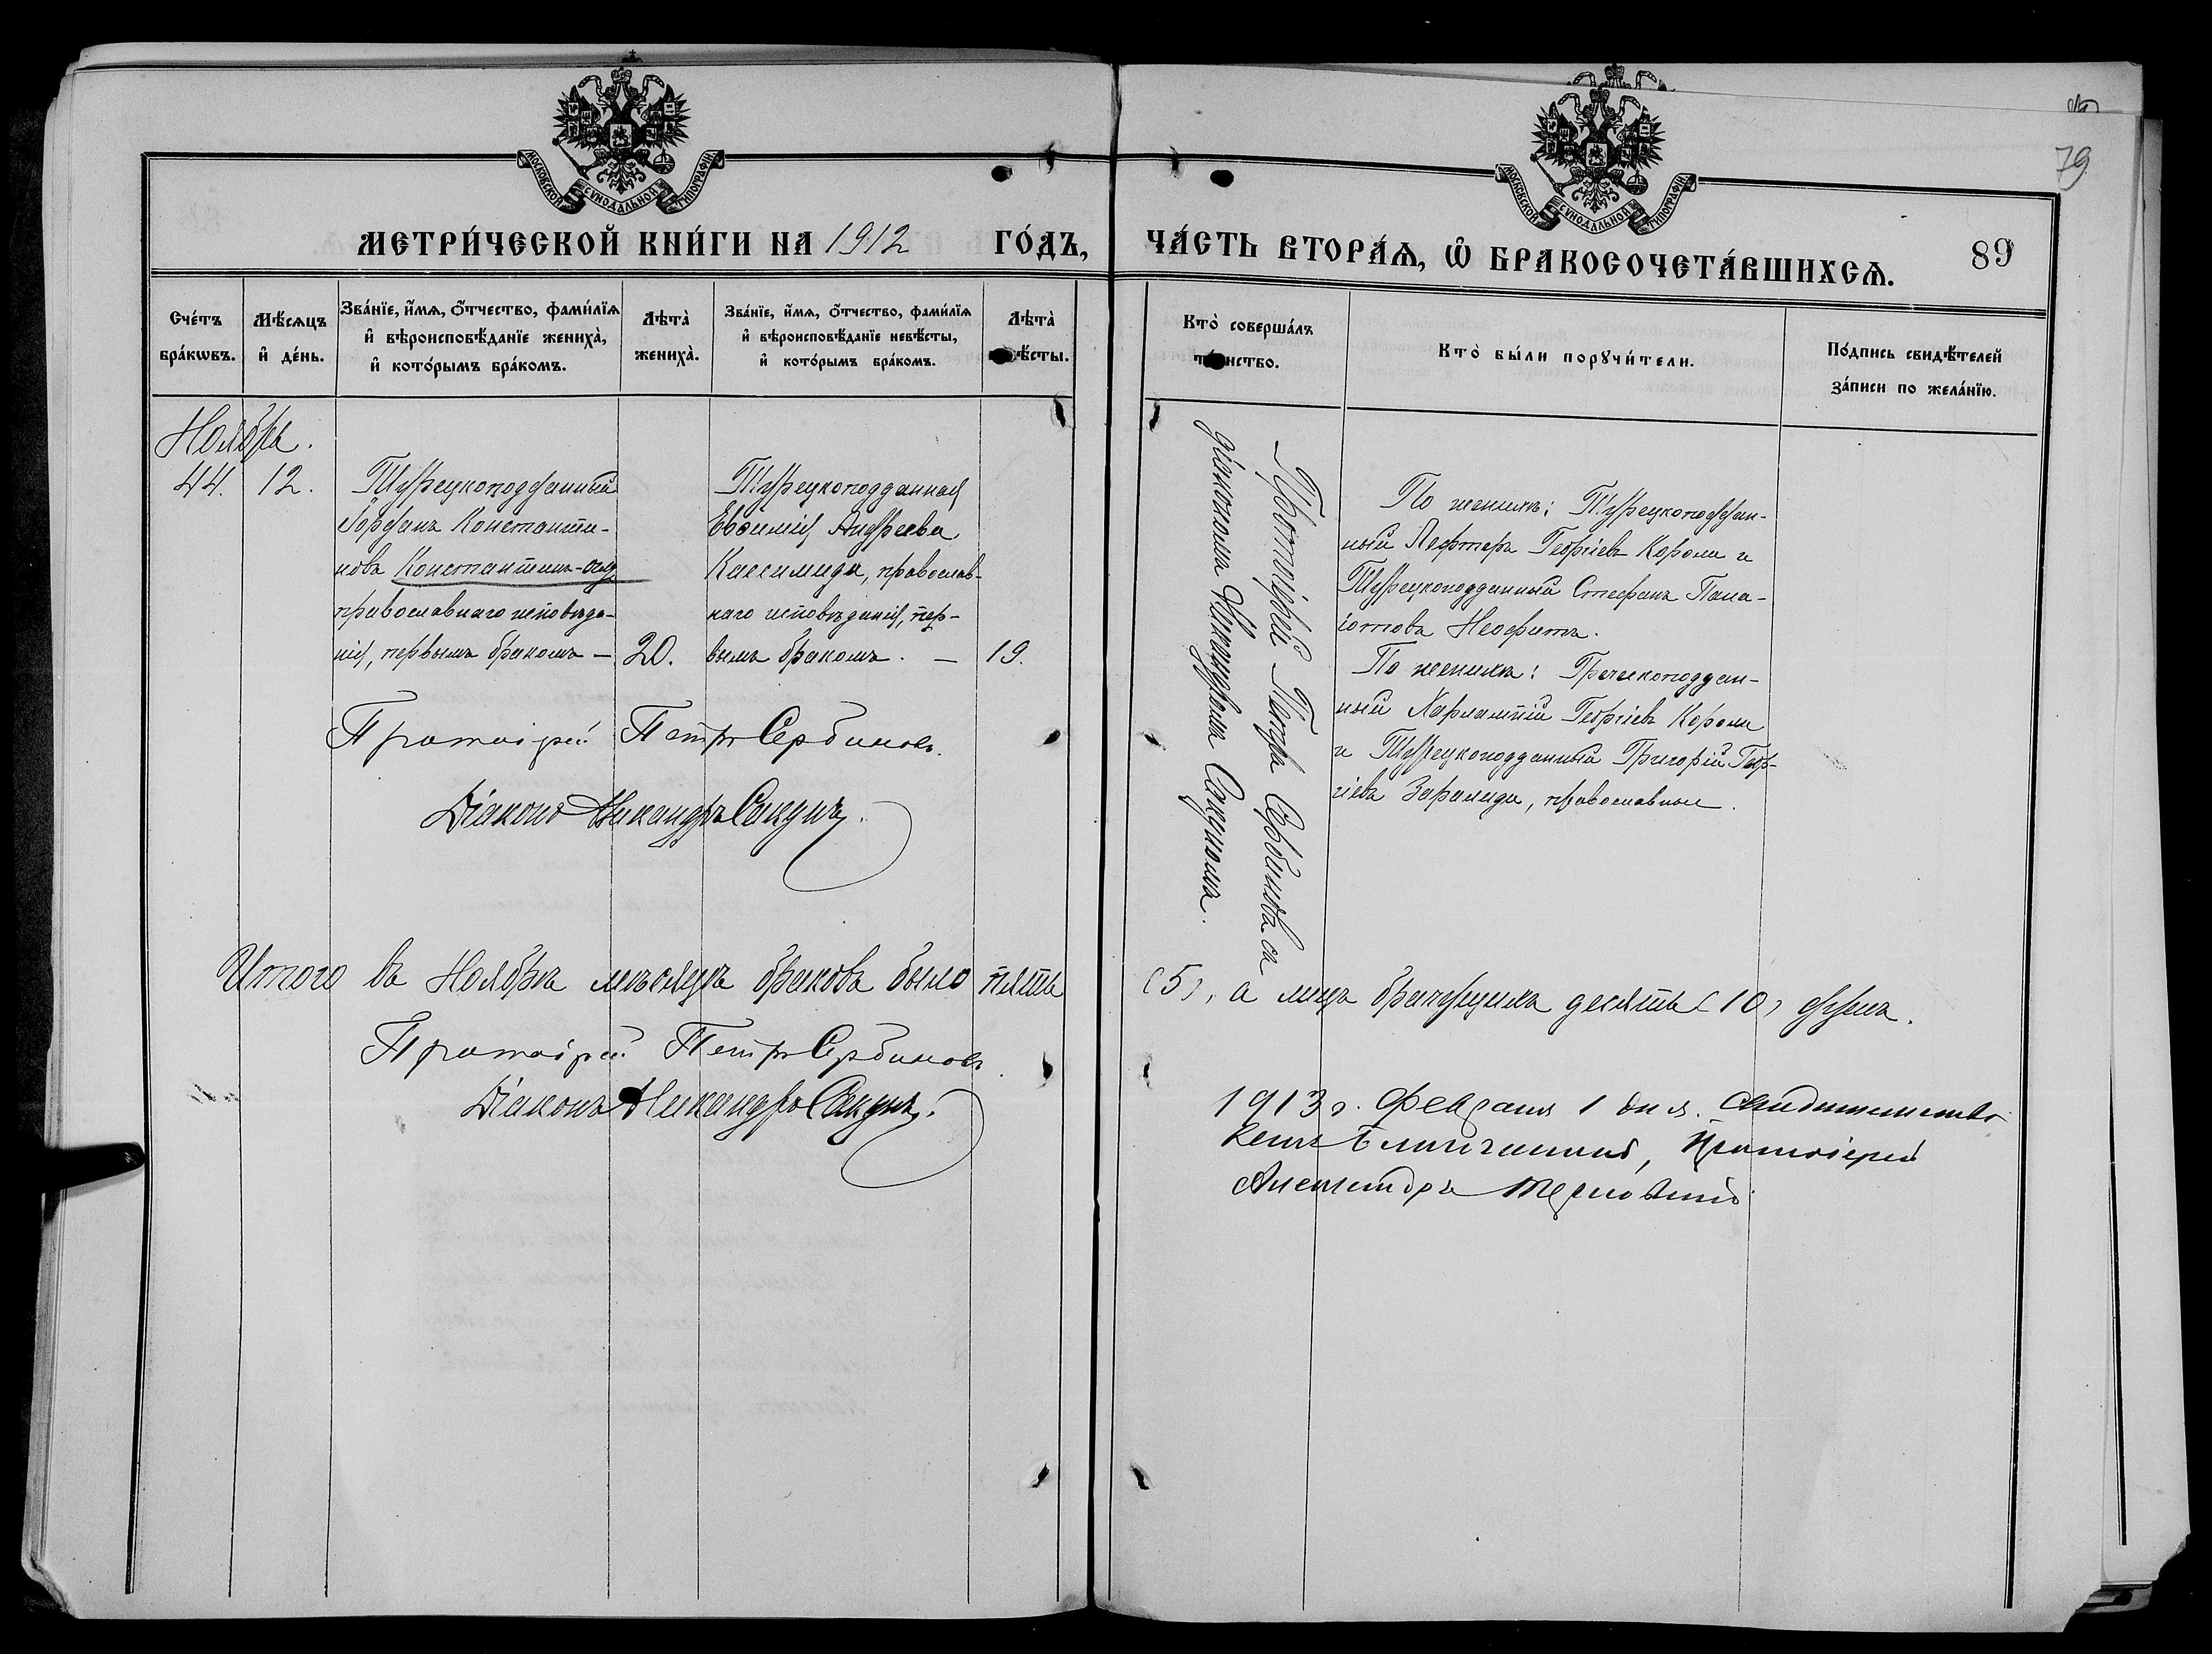 МОСКОВСКОЙ СѴНОДАЛЬНОЙ ТИПОГРАФІИ
МОСКОВСКОЙ СѴНОДАЛЬНОЙ ТИПОГРАФІИ
79
МЕТРИ́ЧЕСКОЙ КНИ́ГИ НА 1912 ГО́ДЪ,
ЧА́СТЬ ВТОРА́Ѧ, Ѡ҆ БРАКОСОЧЕТА́ВШИХСѦ.
89
Сче́тъ
бра́кѡвъ.
Мѣ́сѧцъ
и҆ де́нь.
Зва́нїе, и҆́мѧ, ѻ҆́тчество, фами́лїѧ
и҆ вѣроисповѣ́данїе жениха̀,
и҆ кото́рымъ бра́комъ.
Лѣта̀
жениха̀.
Зва́нїе, и҆́мѧ, ѻ҆́тчество, фами́лїѧ
и҆ вѣроисповѣ́данїе невѣ́сты,
и҆ кото́рымъ бра́комъ.
Лѣта̀
невѣ́сты.
Кто̀ соверша́лъ
та́инство.
Кто̀ бы́ли порꙋчи́тели.
По́дпись свидѣ́телей
за́писи по жела́нїю.
Ноябрь.
44. 12.
Турецкоподданный
Іорданъ Константи-
новъ Константинъ-оглу
православнаго исповѣда-
нія, первымъ бракомъ —
20.
Турецкоподданная
Евѳимія Андреева
Кассимиди, православ-
наго исповѣданія, пер-
вымъ бракомъ. —
19.
Протоіерей Петръ Сербиновъ съ
діакономъ Никандромъ Сакуномъ.
По женихѣ: Турецкоподдан-
ный Лефтеръ Георгіевъ Короли и
Турецкоподданный Стефанъ Пана-
іотовъ Неофитъ.
По женихѣ: Греческоподдан-
ный Харлампій Георгіевъ Короли
и Турецкоподданный Григорій Геор-
гіевъ Зарамиди, православные.
Протоіерей Петръ Сербиновъ.
Діаконъ Никандръ Сакунъ.
Итого въ Ноябрѣ мѣсяцѣ браковъ было пять (5), а лицъ брачущихся десять (10) душъ.
Протоіерей Петръ Сербиновъ.
Діаконъ Никандръ Сакунъ.
1913 г. Февраля 1 дня. Свидѣтельство-
валъ Благочинный, Протоіерей
Александръ